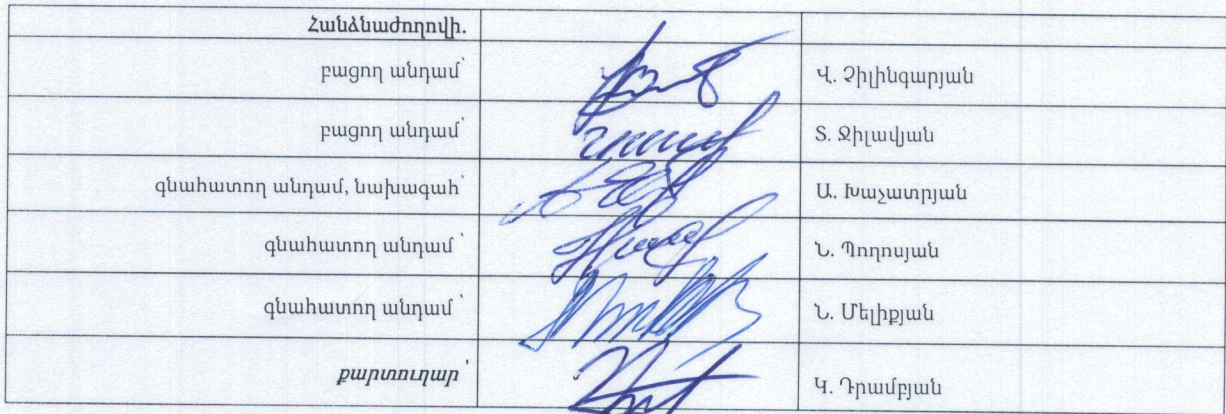 Հանձնաժողովի.
բացող անդամ՝ Վ. Չիլինգարյան
բացող անդամ՝ Տ. Ջիլավյան
գնահատող անդամ, նախագահ՝ Ա. Խաչատրյան
գնահատող անդամ ՝ Ն. Պողոսյան
գնահատող անդամ ՝ Ն. Մելիքյան
քարտուղար ՝ Կ. Դրամբյան